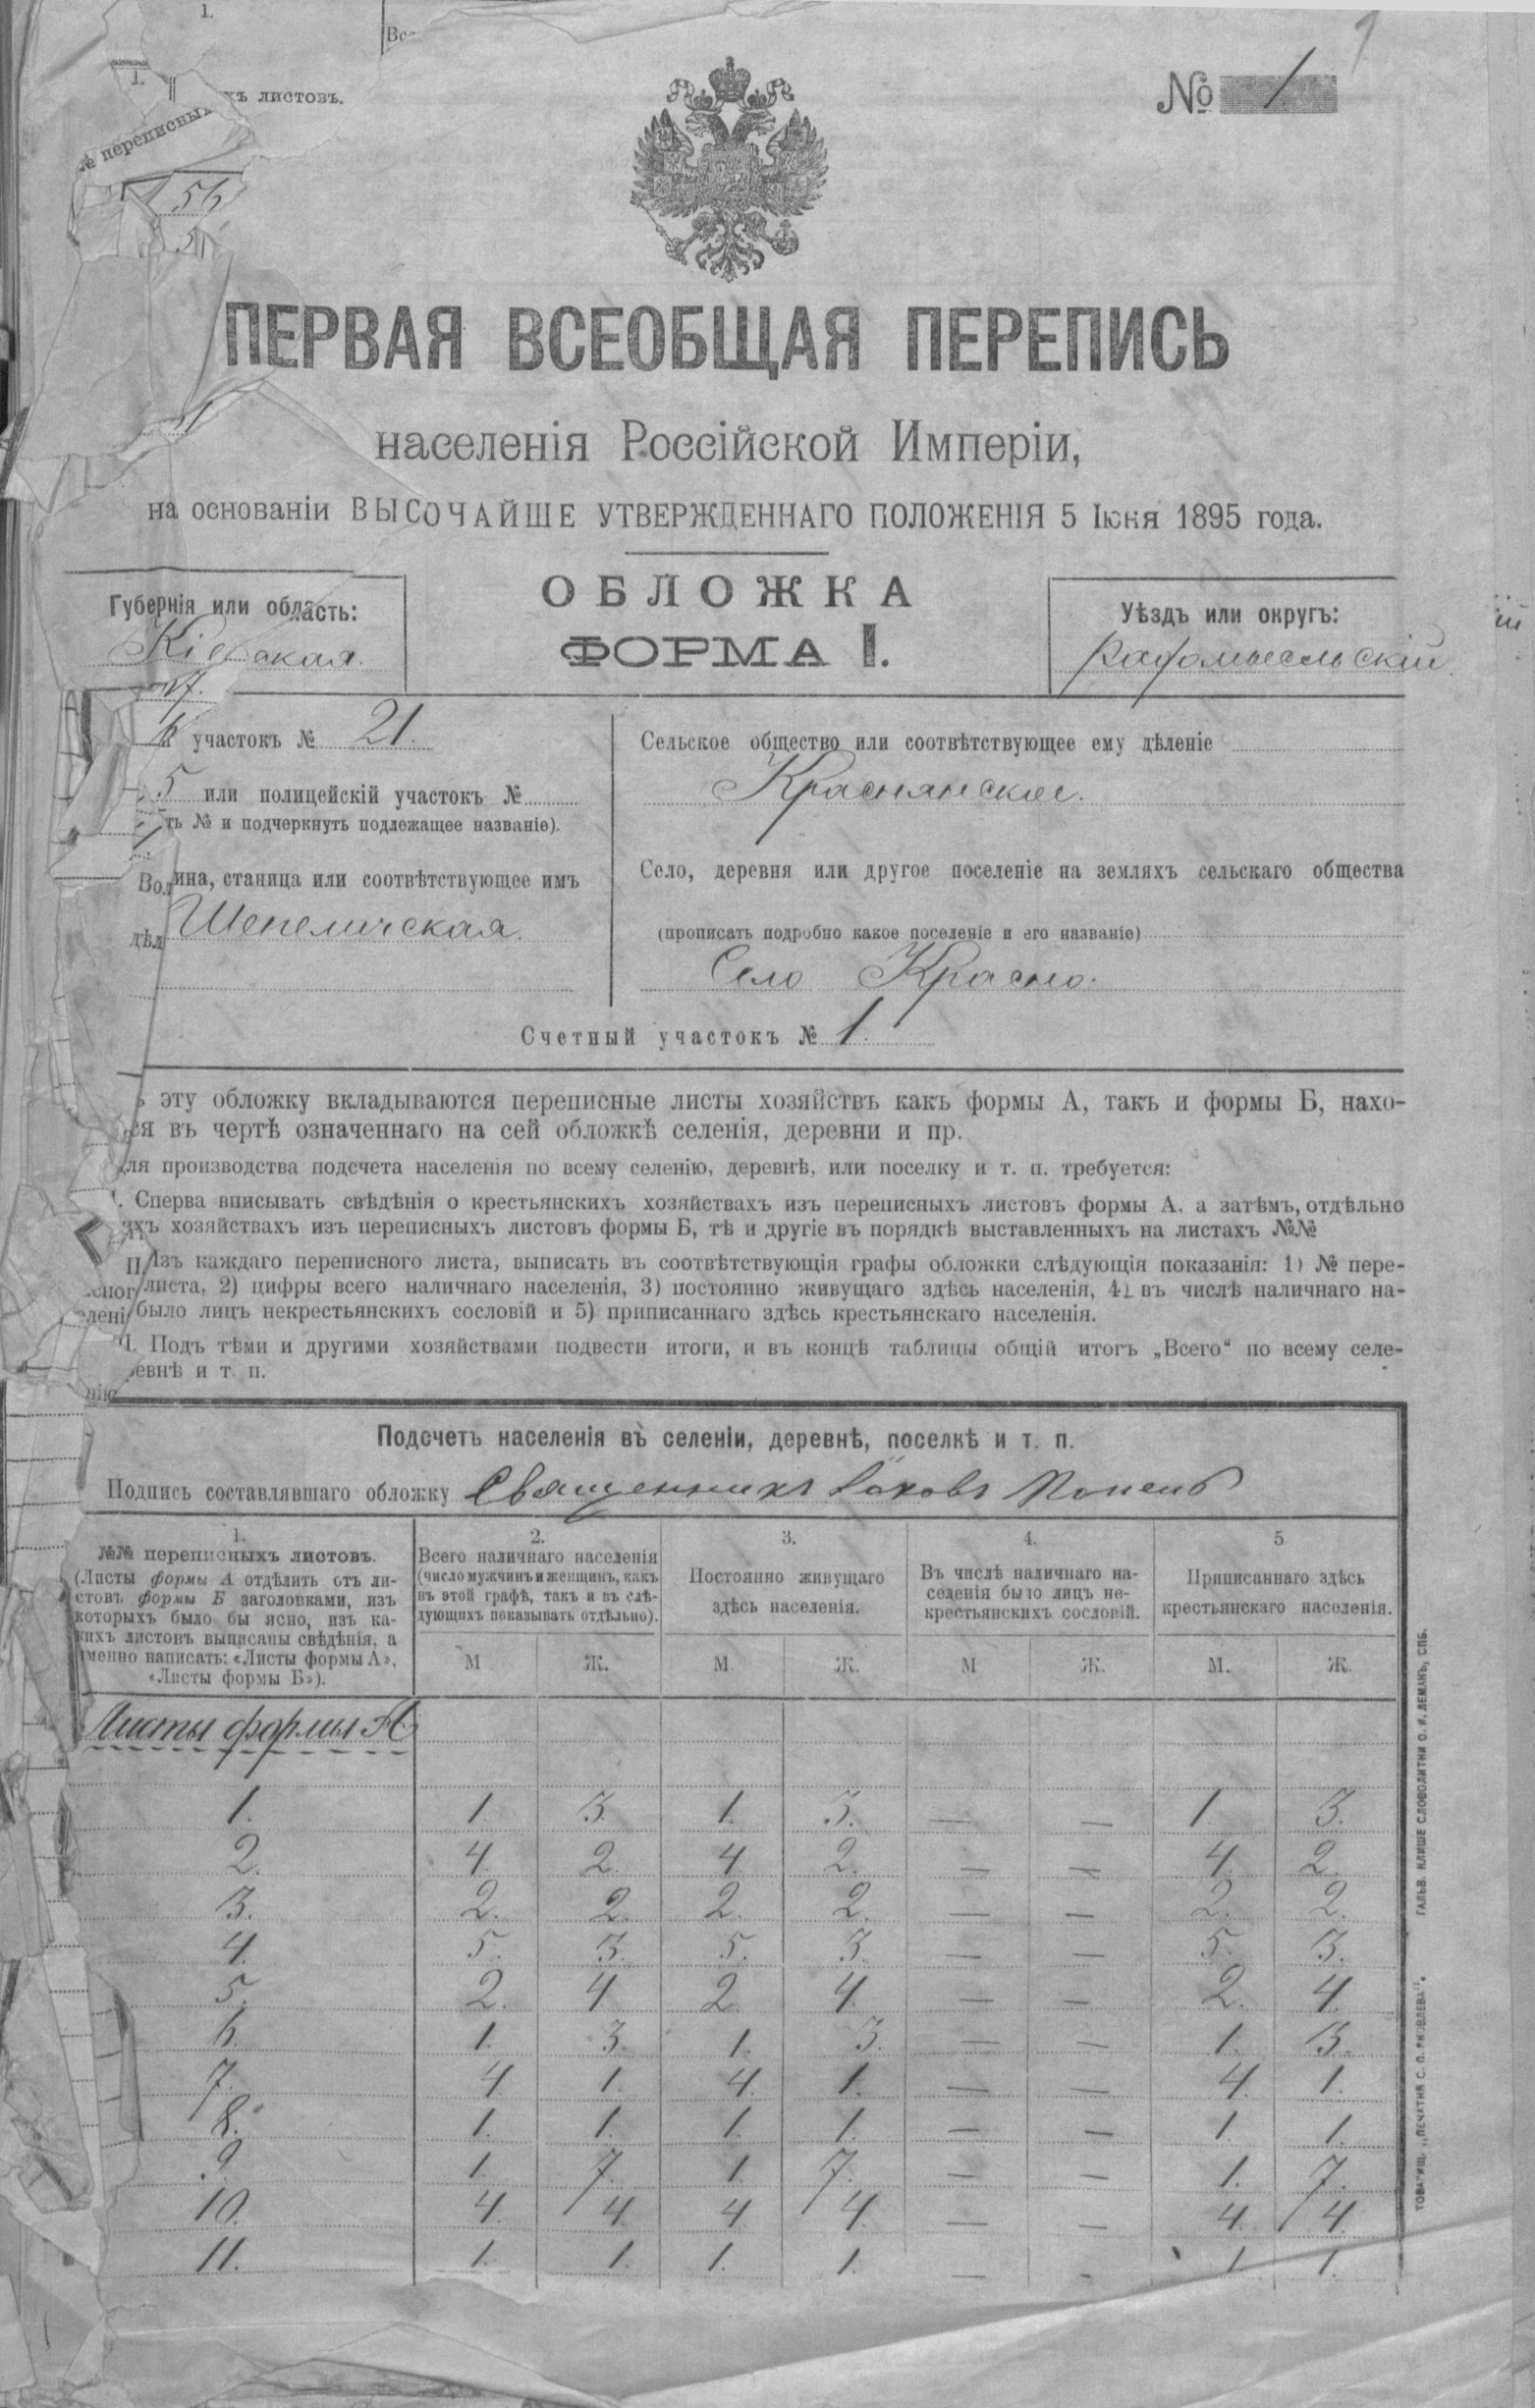 1.
1.
хъ листовъ.
переписны
56
№ 1
1
ПЕРВАЯ ВСЕОБЩАЯ ПЕРЕПИСЬ
населенія Россійской Имперіи,
на основаніи ВЫСОЧАЙШЕ УТВЕРЖДЕННАГО ПОЛОЖЕНІЯ 5 Іюня 1895 года.
ОБЛОЖКА
ФОРМА I.
Губернія или область:
Кіевская.
Уѣздъ или округъ:
Радомысльскій
участокъ № 21.
5 или полицейскій участокъ №
ть № и подчеркнуть подлежащее названіе).
Сельское общество или соотвѣтствующее ему дѣленіе
Краснянское.
Село, деревня или другое поселеніе на земляхъ сельскаго общества
(прописать подробно какое поселеніе и его названіе)
Село Красно.
ина, станица или соотвѣтствующее имъ
дѣл Шепеличская.
Счетный участокъ № 1.
эту обложку вкладываются переписные листы хозяйствъ какъ формы А, такъ и формы Б, нахо-
ся въ чертѣ означеннаго на сей обложкѣ селенія, деревни и пр.
ля производства подсчета населенія по всему селенію, деревнѣ, или поселку и т. п. требуется:
I. Сперва вписывать свѣдѣнія о крестьянскихъ хозяйствахъ изъ переписныхъ листовъ формы А. а затѣмъ, отдѣльно
ихъ хозяйствахъ изъ переписныхъ листовъ формы Б, тѣ и другіе въ порядкѣ выставленныхъ на листахъ №№
II Изъ каждаго переписного листа, выписать въ соотвѣтствующія графы обложки слѣдующія показанія: 1) № пере-
сног листа, 2) цифры всего наличнаго населенія, 3) постоянно живущаго здѣсь населенія, 4) въ числѣ наличнаго на-
лені было лицъ некрестьянскихъ сословій и 5) приписаннаго здѣсь крестьянскаго населенія.
I. Подъ тѣми и другими хозяйствами подвести итоги, и въ концѣ таблицы общій итогъ „Всего“ по всему селе-
ревнѣ и т. п.
Подсчетъ населенія въ селеніи, деревнѣ, поселкѣ и т. п.
Подпись составлявшаго обложку Священникъ Іаковъ
1.
№№ переписныхъ листовъ.
(Листы формы А отдѣлить отъ ли-
стовъ формы Б заголовками, изъ
которыхъ было бы ясно, изъ ка-
кихъ листовъ выписаны свѣдѣнія, а
именно написать: «Листы формы А»,
«Листы формы Б»).
2.
Всего наличнаго населенія
(число мужчинъ и женщинъ, какъ
въ этой графѣ, такъ и въ слѣ-
дующихъ показывать отдѣльно).
3.
Постоянно живущаго
здѣсь населенія.
4.
Въ числѣ наличнаго на-
селенія было лицъ не-
крестьянскихъ сословій.
5
Приписаннаго здѣсь
крестьянскаго населенія.
М Ж. М. Ж. М Ж. М. Ж.
Листы формы А
1. 1. 3. 1. 3. — — 1. 3.
2. 4. 2. 4. 2. — — 4. 2.
3. 2. 2. 2. 2. — — 2. 2.
4. 5. 3. 5. 3. — — 5. 3.
5. 2. 4. 2. 4. — — 2. 4.
6. 1. 3. 1. 3. — — 1. 3.
7. 4. 1. 4. 1. — — 4. 1.
8. 1. 1. 1. 1. — — 1. 1.
9. 1. 7. 1. 7. — — 1. 7.
10. 4. 4. 4. 4. — — 4. 4.
11. 1. 1. 1. 1. — - 1. 1.
ТОВАРИЩ. „ПЕЧАТНЯ С. П. ЯКОВЛЕВА“. ГАЛЬВ. КЛИШЕ СЛОВОЛИТНИ О. И. ЛЕМАНЪ, СПБ.